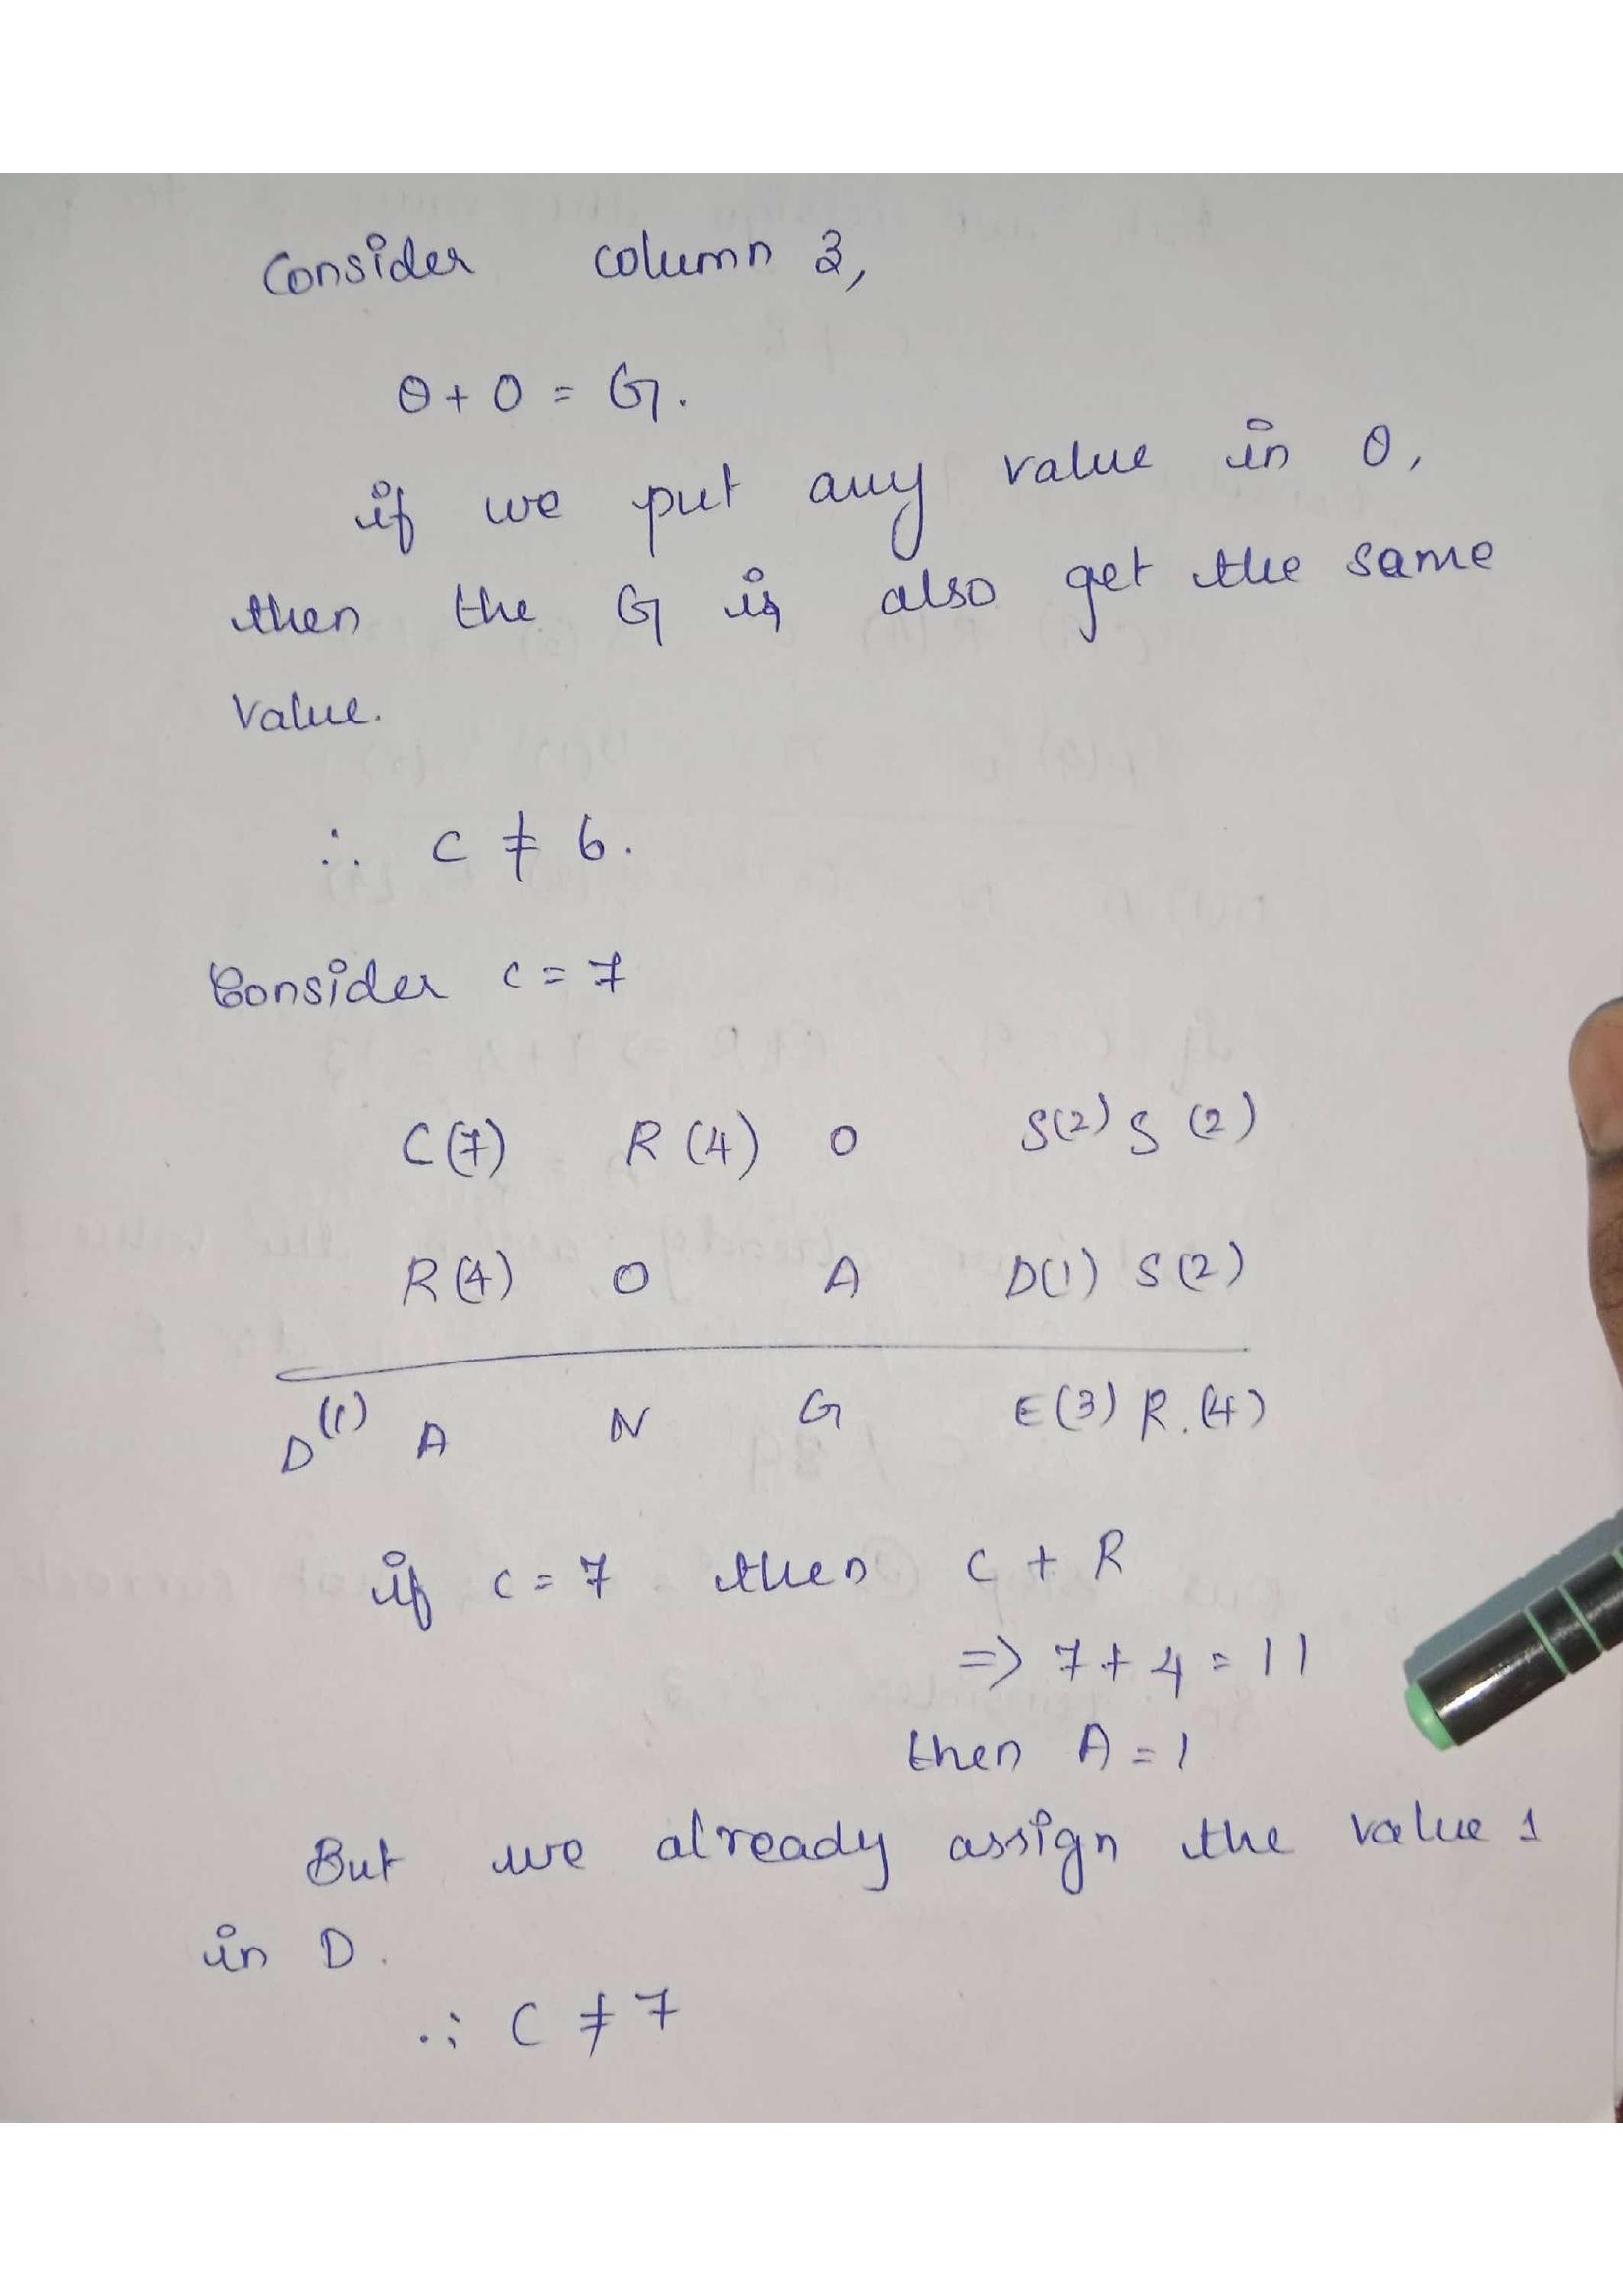 Consider column 3,
0 + 0 = G.
if we put any value in 0,
then the G is also get the same
value.
∴ C ≠ 6.
Consider C = 7
C(7) R(4) O S(2) S(2)
R(4) O A D(1) S(2)
D(1) A N G E(3) R.(4)
if C = 7 then C + R
=> 7 + 4 = 11
then A = 1
But we already assign the value 1
in D.
∴ C ≠ 7